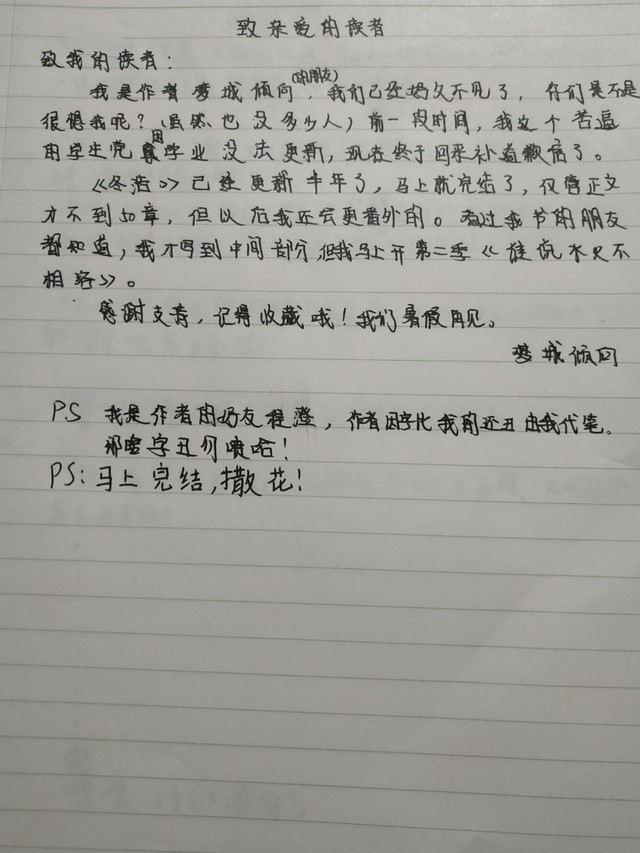 致亲爱的读者
致我的读者：
我是作者梦城倾向(的朋友)，我们已经好久不见了，你们是不是
很想我呢？(虽然也没多少人)前一段时间，我这个苦逼
的学生党因学业没法更新，现在终于回来补道歉信了。
《冬浩》已经更新半年了，马上就完结了，仅管正文
才不到50章，但以后我还会更番外的。看过我节的朋友
都知道，我才写到中间部分，但我马上开第二季《谁说水火不
相容》。
感谢支持，记得收藏哦！我们暑假再见。
梦城倾回
PS 我是作者的好友程澄，作者因字比我的还丑由我代笔。
那啥字丑勿喷哈！
PS：马上完结，撒花！